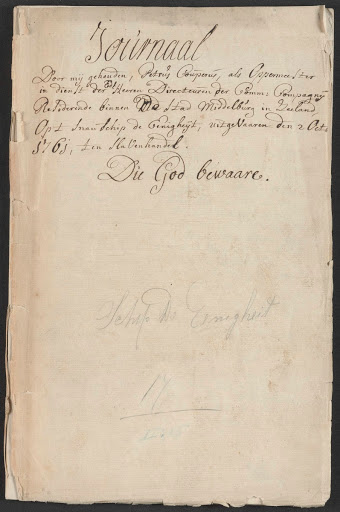 Journaal
Door mij gehouden, Petrus Couperus, als Oppermeester
in dienst der Ed: Heeren Directeuren der Comm: Compagnij
Residerende binnen de stad Middelburg in Zeeland,
Op't Snauschip de Eenigheijt, uitgevaaren den 2 Octr
1761, ten Slavenhandel.
Die God bewaare.
Schip de Eenigheit
17